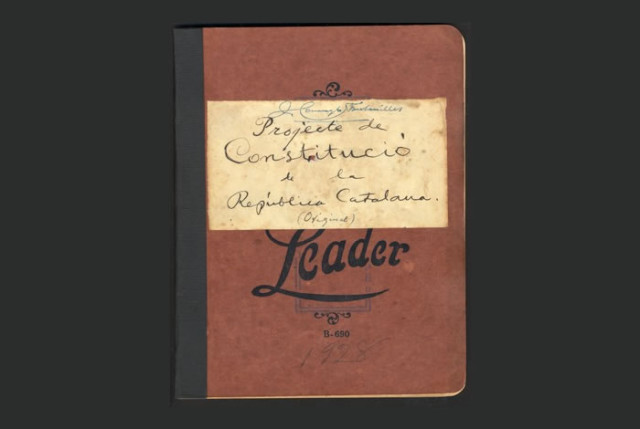 J. Conangla Fontanilles
Projecte de
Constitució
de la
República Catalana.
(Original)
Leader
B-690
1928